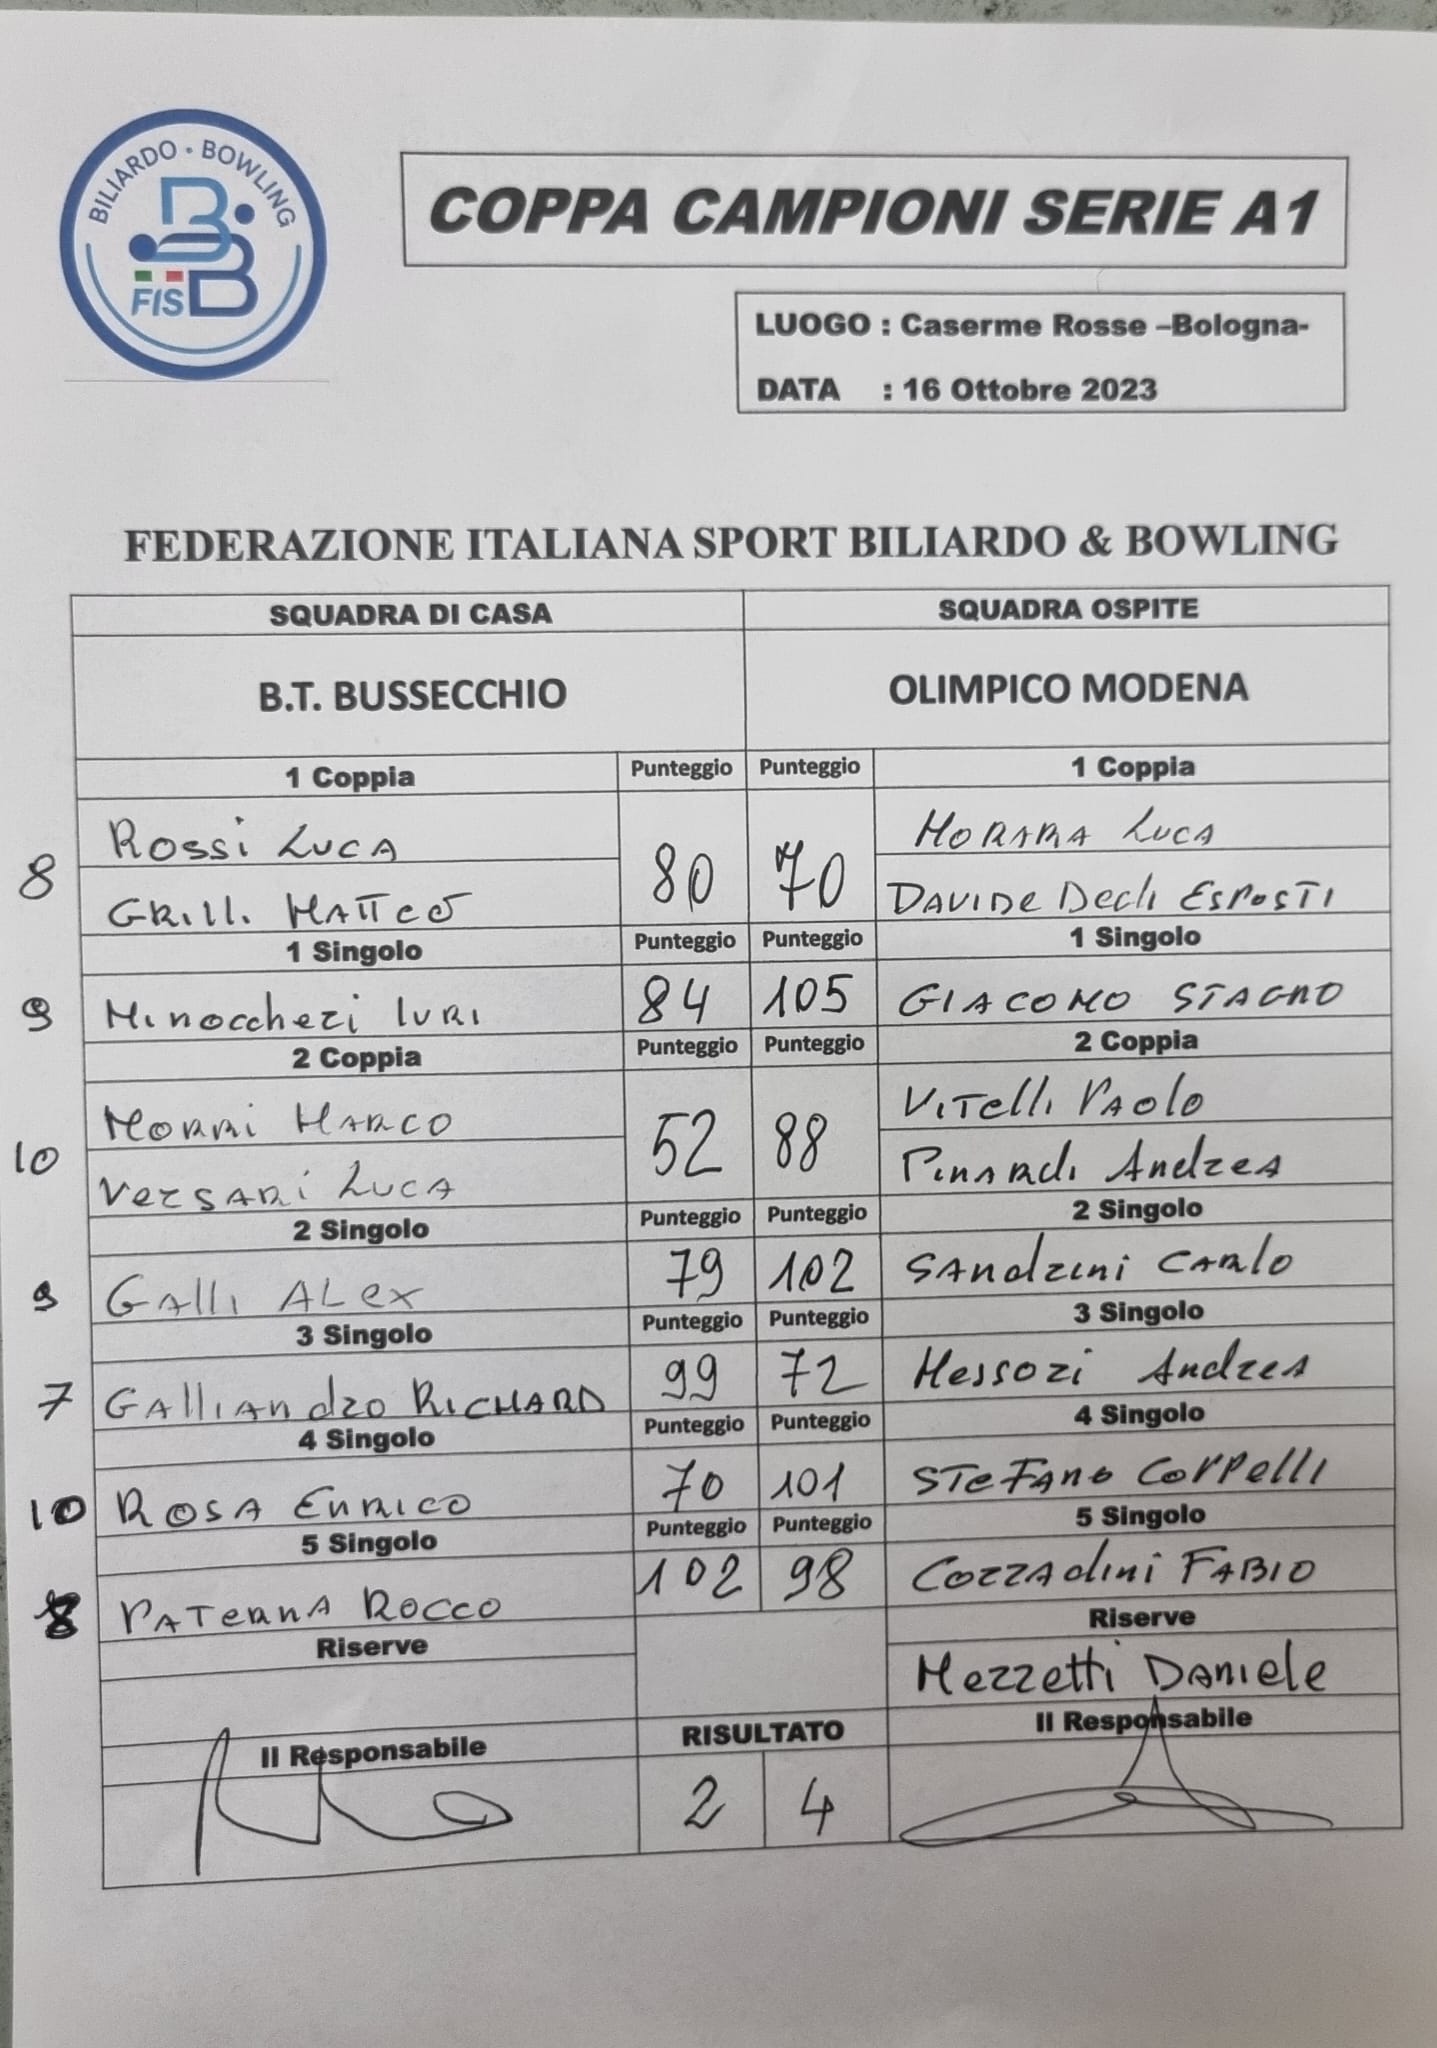 BILIARDO • BOWLING
FISBB
COPPA CAMPIONI SERIE A1
LUOGO : Caserme Rosse –Bologna-
DATA : 16 Ottobre 2023
FEDERAZIONE ITALIANA SPORT BILIARDO & BOWLING
SQUADRA DI CASA SQUADRA OSPITE
B.T. BUSSECCHIO OLIMPICO MODENA
1 Coppia Punteggio Punteggio 1 Coppia
Rossi LUCA MORARA LUCA
8 80 70
GRILLI MATTEO DAVIDE Degli ESPOSTI
1 Singolo Punteggio Punteggio 1 Singolo
9 Minoccheri IURI 84 105 GIACOMO STAGNO
2 Coppia Punteggio Punteggio 2 Coppia
MORRI MARCO VITelli PAOlo
10 52 88
VerSARi LUCA PINARdi Andrea
2 Singolo Punteggio Punteggio 2 Singolo
9 GAlli ALex 79 102 SANdrini CARLO
3 Singolo Punteggio Punteggio 3 Singolo
7 GAlliANdro RICHARD 99 72 Messori Andrea
4 Singolo Punteggio Punteggio 4 Singolo
10 ROSA ENRICO 70 101 STeFANO COPPelli
5 Singolo Punteggio Punteggio 5 Singolo
8 PATernA ROCCO 102 98 COZZAdini FABIO
Riserve Riserve
Mezzetti DANIele
Il Responsabile RISULTATO Il Responsabile
2 4